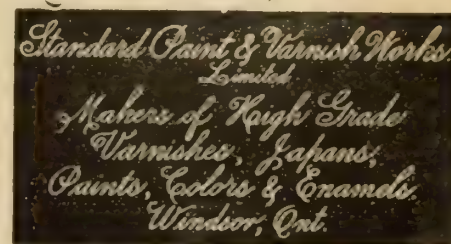 Standard Paint & Varnish Works.
Limited
Makers of High Grade
Varnishes, Japans,
Paints, Colors & Enamels.
Windsor, Ont.